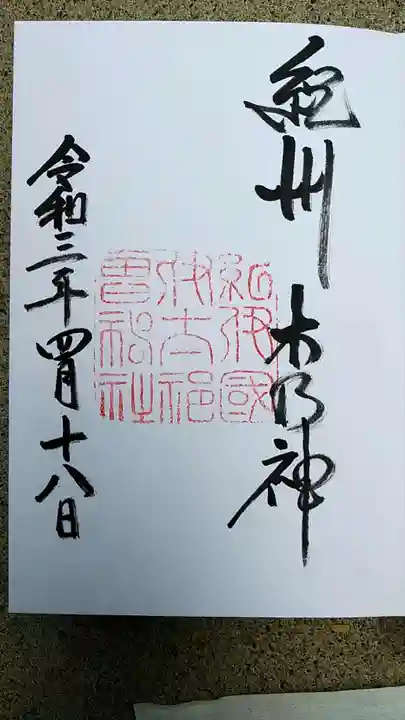 紀州 木乃神
紀伊國
伊太祁
曽神社
令和三年四月十八日